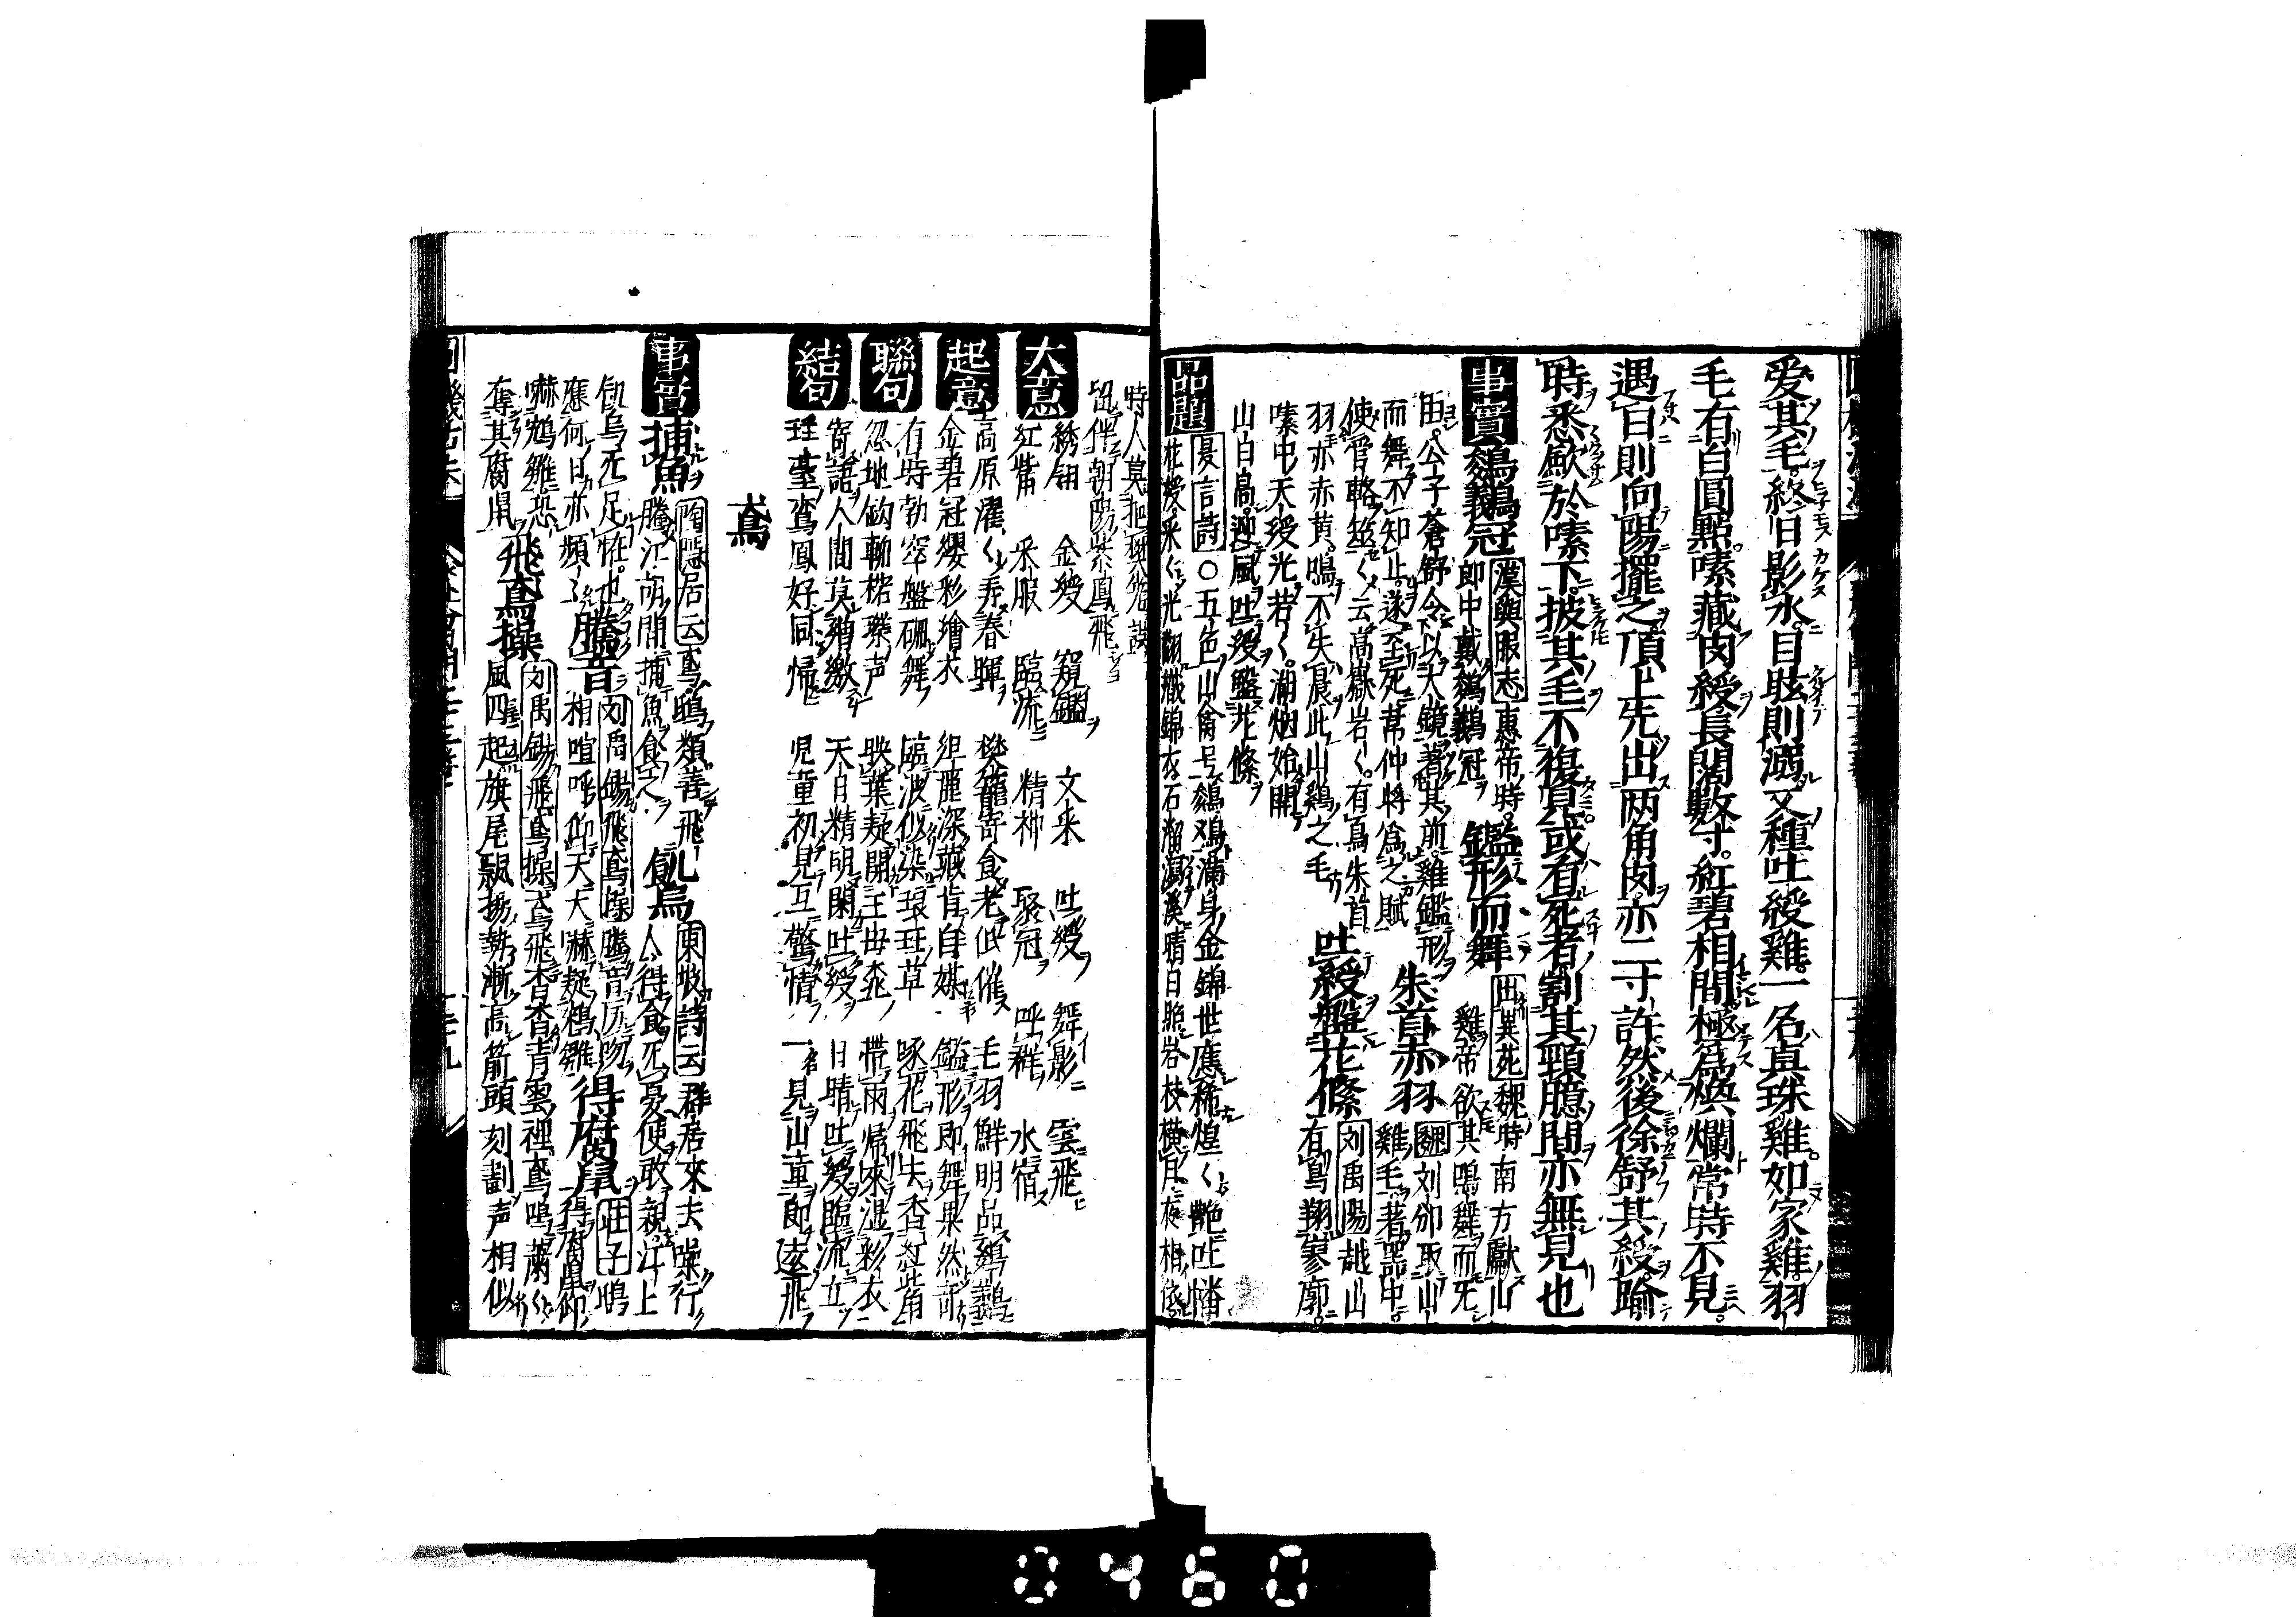 愛其毛終日影水目眩則溺又種吐綬雞一名真珠雞如家雞羽
毛有白圓點嗉藏肉綬長闊数寸紅碧相間極為煥爛常時不見
遇日則向陽擺之頂上先出両角肉亦二寸許然後徐舒其綬踰
時悉斂於嗉下披其毛不復見或有死者割其頸臆間亦無見也
事實 鵔鸃冠 漢輿服志 惠帝時郎中戴鵔鸃冠 鑑形而舞 異苑 魏時南方獻山雞帝欲其鳴舞而无
由公子蒼舒令以大鏡著其前雞鑑形而舞不知止遂至死韋仲将為之賦 朱首赤羽 刘邵 取山雞毛著器中
使管輅筮之云高嶽岩岩有鳥朱首羽赤赤黄鳴不失晨此山鷄之毛 吐綬盤花條 刘禹陽 越山有鳥翔寥廓
嗉中天綬光若若湖烟始開山白高迎風吐綬盤花條
品題 晏言詩 ○五色山禽号鵔鸃満身金錦世應稀煌煌艶吐幡
花綬采采光翻織錦衣石溜濕溪晴日照岩枝横月夜相依
時人莫把
留伴朝陽紫鳳飛
大意 綉翎 金綬 窺鑑 文采 吐綬 舞影 雲飛
紅觜 采服 臨流 精神 聚冠 呼群 水宿
起意 高原濯濯弄春暉 樊籠寄食老低催 毛羽鮮明品鵔鸃
金碧冠纓彩繪衣 紅塵深藏肯自媒 鑑形即舞果然
聯句 有時勃窣盤砌舞 臨波似染琅玕草 啄花飛去香紅觜
忽地鉤輈楷磔声 映葉疑開王母桃 帶雨帰來湿彩衣
結句 寄語人間莫矰繳 天日精明閑吐綬 日晴吐綬臨流立
珏臺鸞鳳好同帰 児童初見互驚情 一見山童即遠飛
鳶
事實 捕魚 陶隠居云 鳶鴟類善飛騰江湖間捕魚食之 飢烏 東坡詩云 群居來去噪行人得食无憂使敢親江上
飢烏无足怪也 騰音 刘禹錫飛鳶操 騰音礪吻相喧呼仰天大嚇疑鴛雛 得腐鼠 荘子 鴟得腐鼠仰
嚇鵷雛恐奪其腐鼠 飛鳶操 刘禹錫飛鳶操 鳶飛杳杳青雲裡鳶鳴蕭蕭
風四起旗尾飄揚勢漸高箭頭刻劃声相似
0460